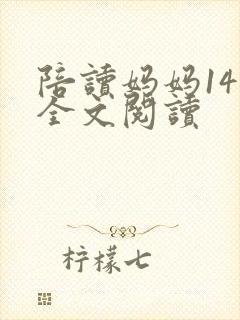 陪讀妈妈14
全文閱讀
柠檬七